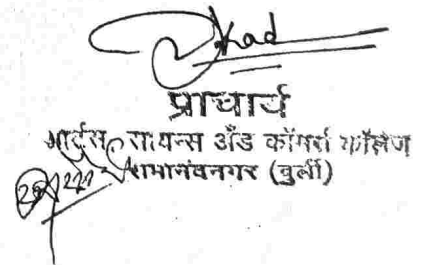 प्राचार्य
आर्ट्स, सायन्स अँड कॉमर्स कॉलेज
रामानंदनगर (बुर्ली)